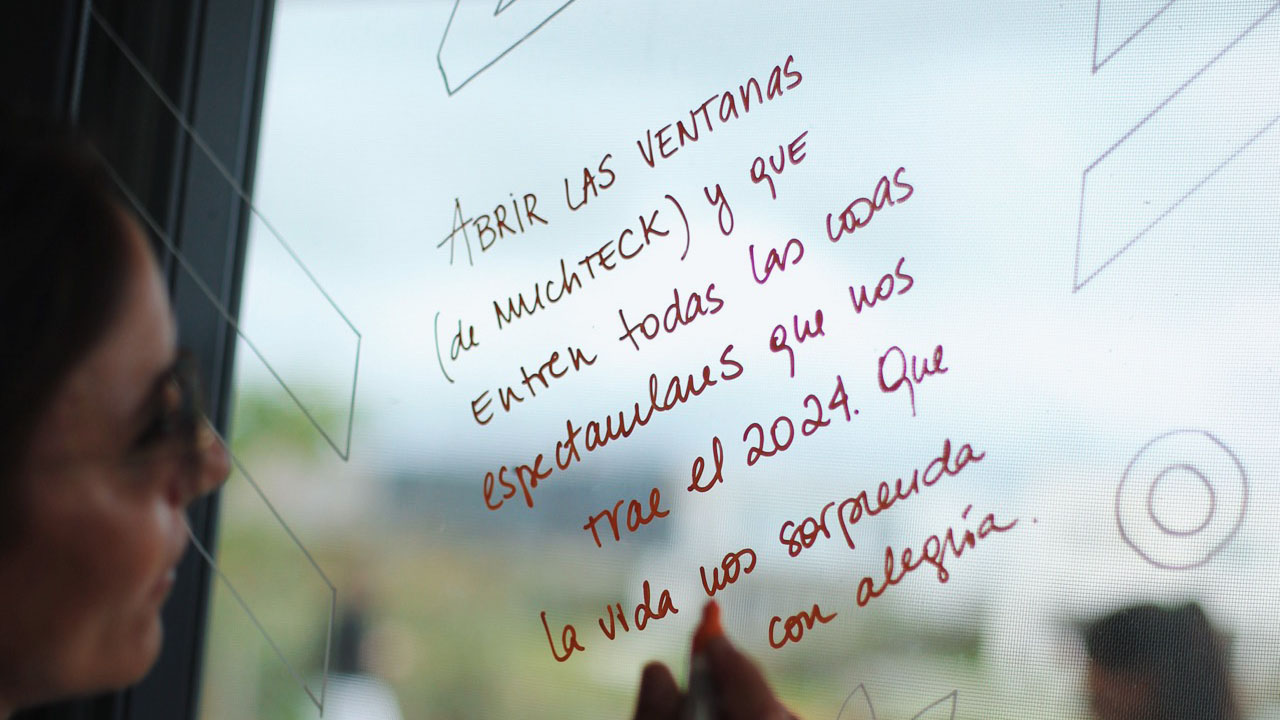 ABRIR LAS VENTANAS
(de MUCHTECK) y QUE
ENTREN todas las cosas
espectaculares que nos
trae el 2024. Que
la vida nos sorprenda
con alegría.